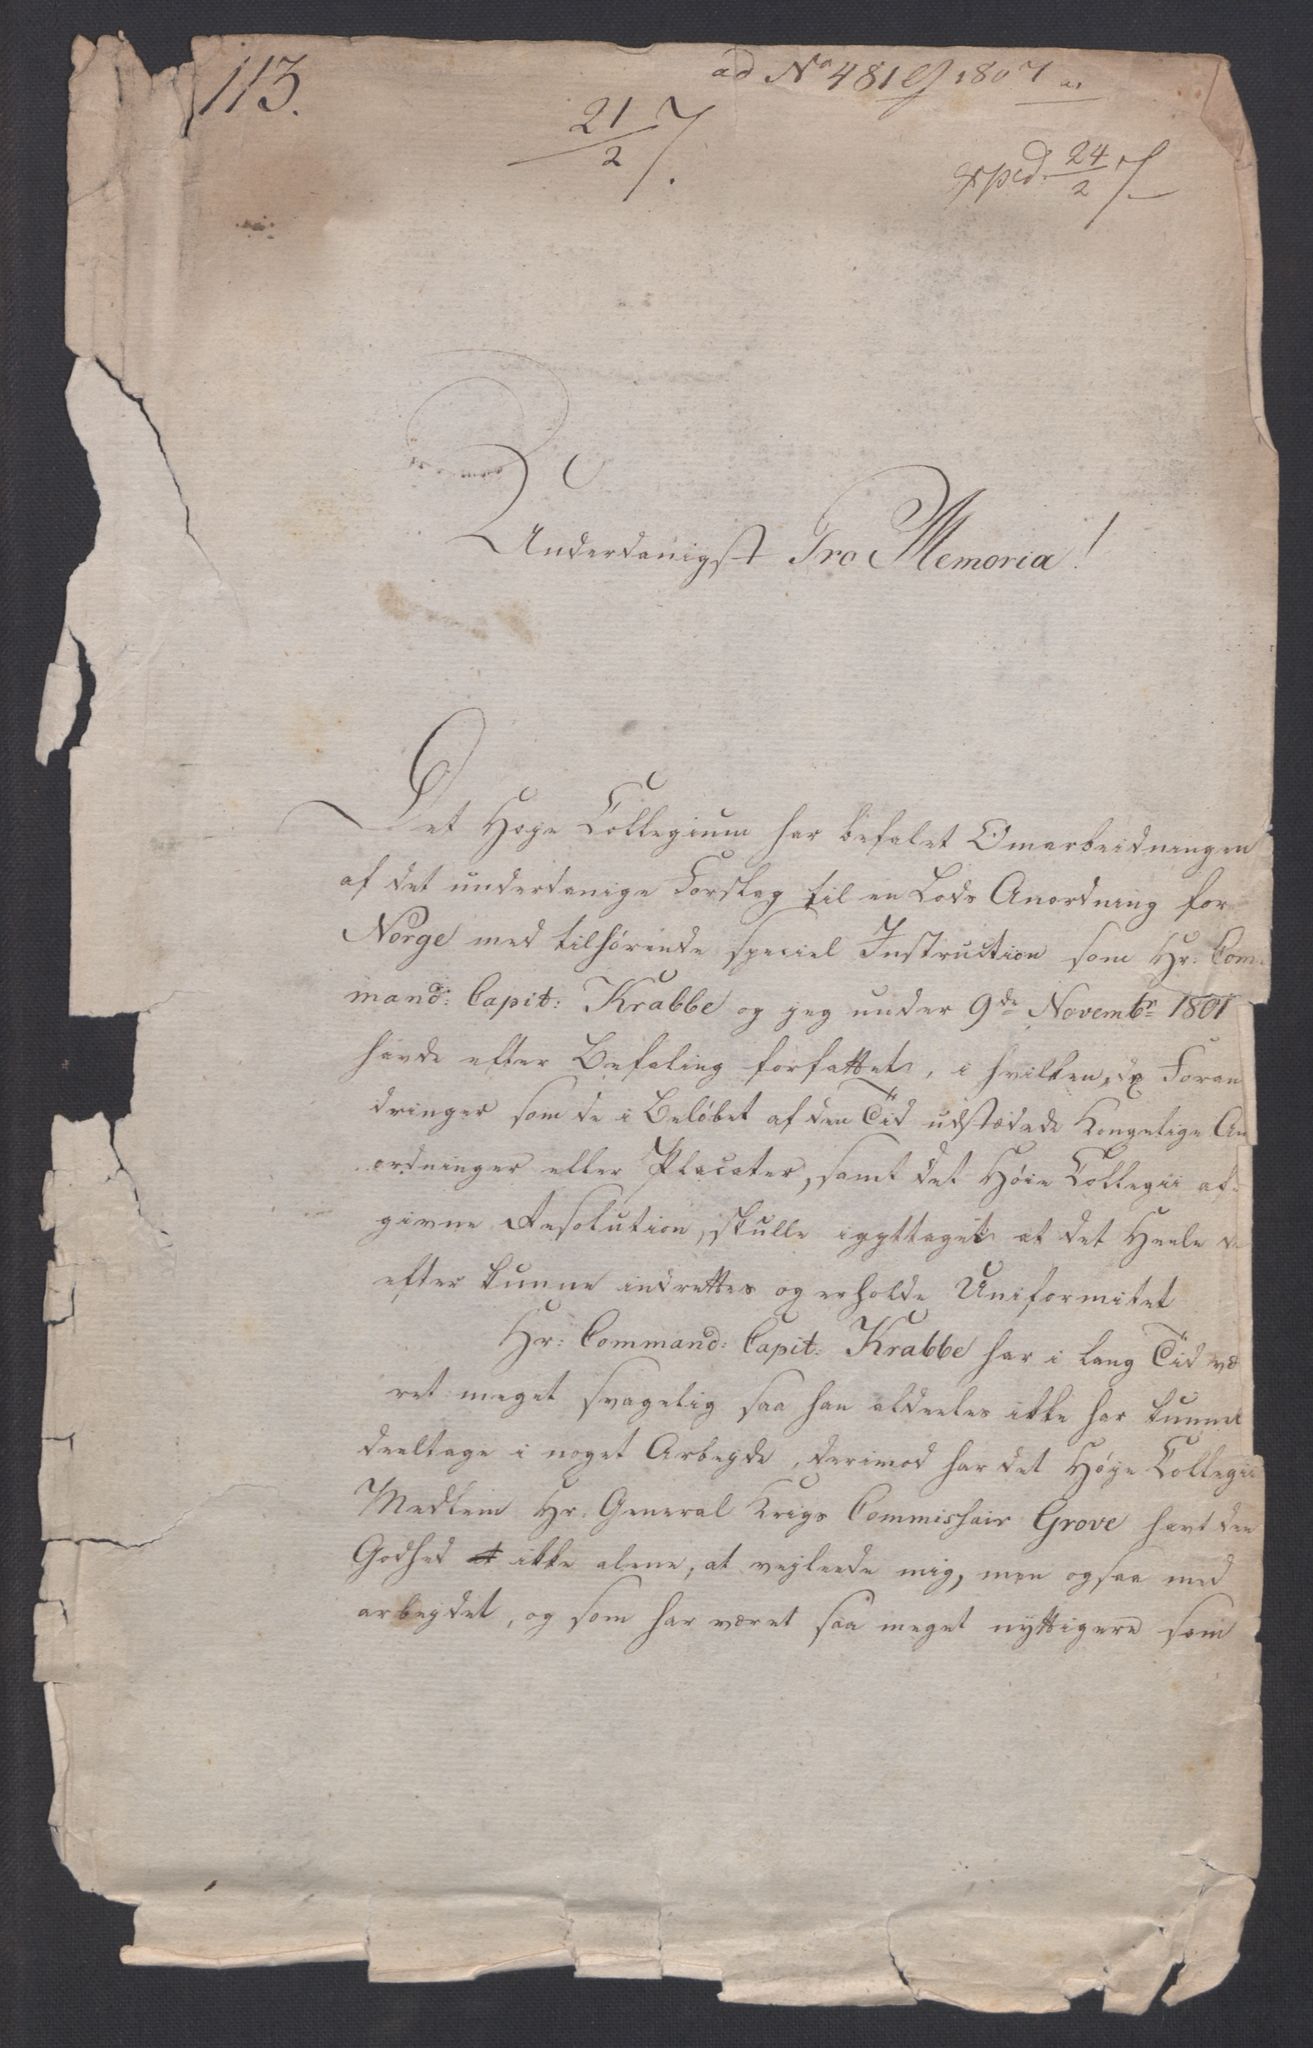 113.
ad No 481 1807
21/2 7.
exped. 24/2 7
Underdanigst Pro Memoria!
Det Høye Collegium har befalet Omarbeidningen
af det underdanige Forslag til en Lods Anordning for
Norge med tilhørende speciel Instruction som Hr: Com-
mand: Capit: Krabbe og jeg under 9de Novembr 1801
havde efter Befaling forfattet, i hvilken de Foran
dringer som de i Beløbet af den Tid udstædede Kongelige An
ordninger eller Placater, samt det Høie Collegii af-
givne Resolution, skulle iagttaget at det Heele de
efter kunne indrettes og erholde Uniformitet
Hr: Command: Capit: Krabbe har i lang Tid væ
ret meget svagelig saa han aldeeles ikke har kunnet
deeltage i noget Arbejde, derimod har det Høye Collegii
Medlem Hr: General Krigs Commishair Grove havt den
Godhed ikke alene, at vejleede mig, men ogsaa med
arbejdet, og som har været saa meget nyttigere som